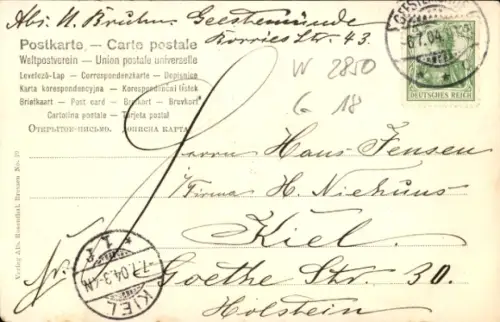 Abs: N. Bruhn. Geestemünde
Borries Str. 43.
Postkarte. — Carte postale
Weltpostverein — Union postale universelle
Levelező-Lap — Correspondenzkarte — Dopisnice
Karta korespondencyjna — Korespondenční lístek
Briefkaart — Post card — Brevkort — Brefkort
Cartolina postale — Tarjeta postal
Открытое-письмо. Дописна карта
W 2850
G 18
GEESTEMÜNDE
6.7.04
DEUTSCHES REICH
Herrn Hans Jensen
Firma H. Niehuus
Kiel.
Goethe Str. 30.
Holstein
KIEL
7.7.04.3-4N
Verlag Alb. Rosenthal, Bremen No. 20